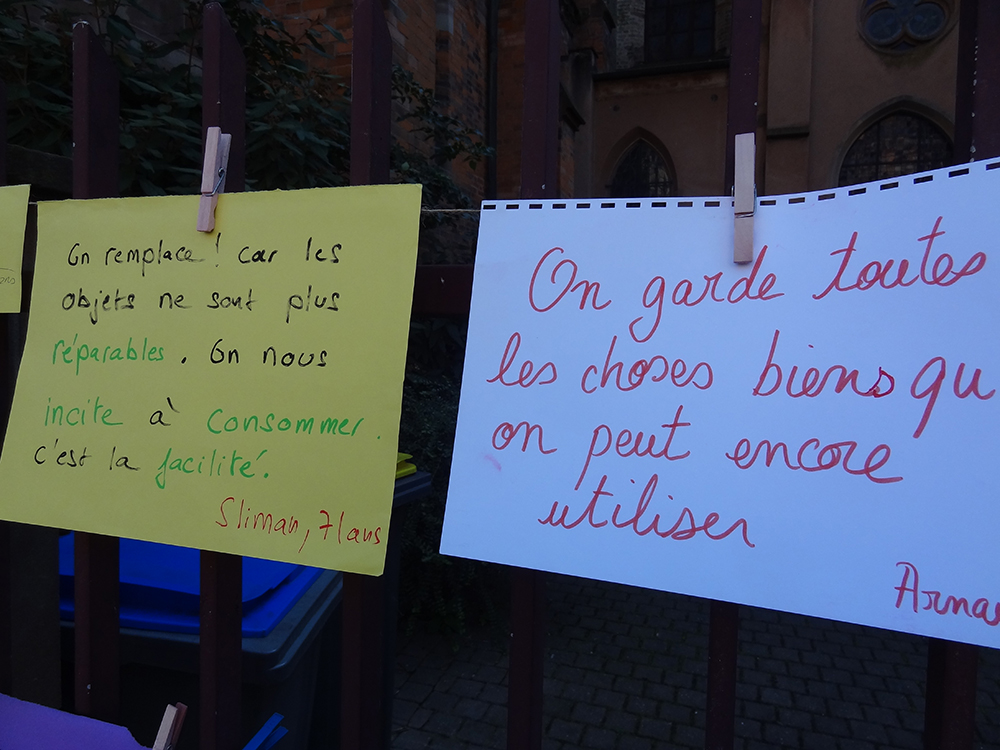 On remplace! car les
objets ne sont plus
réparables. On nous
incite à consommer.
c'est la facilité.
Sliman, 71ans
On garde toutes
les choses biens qu
on peut encore
utiliser